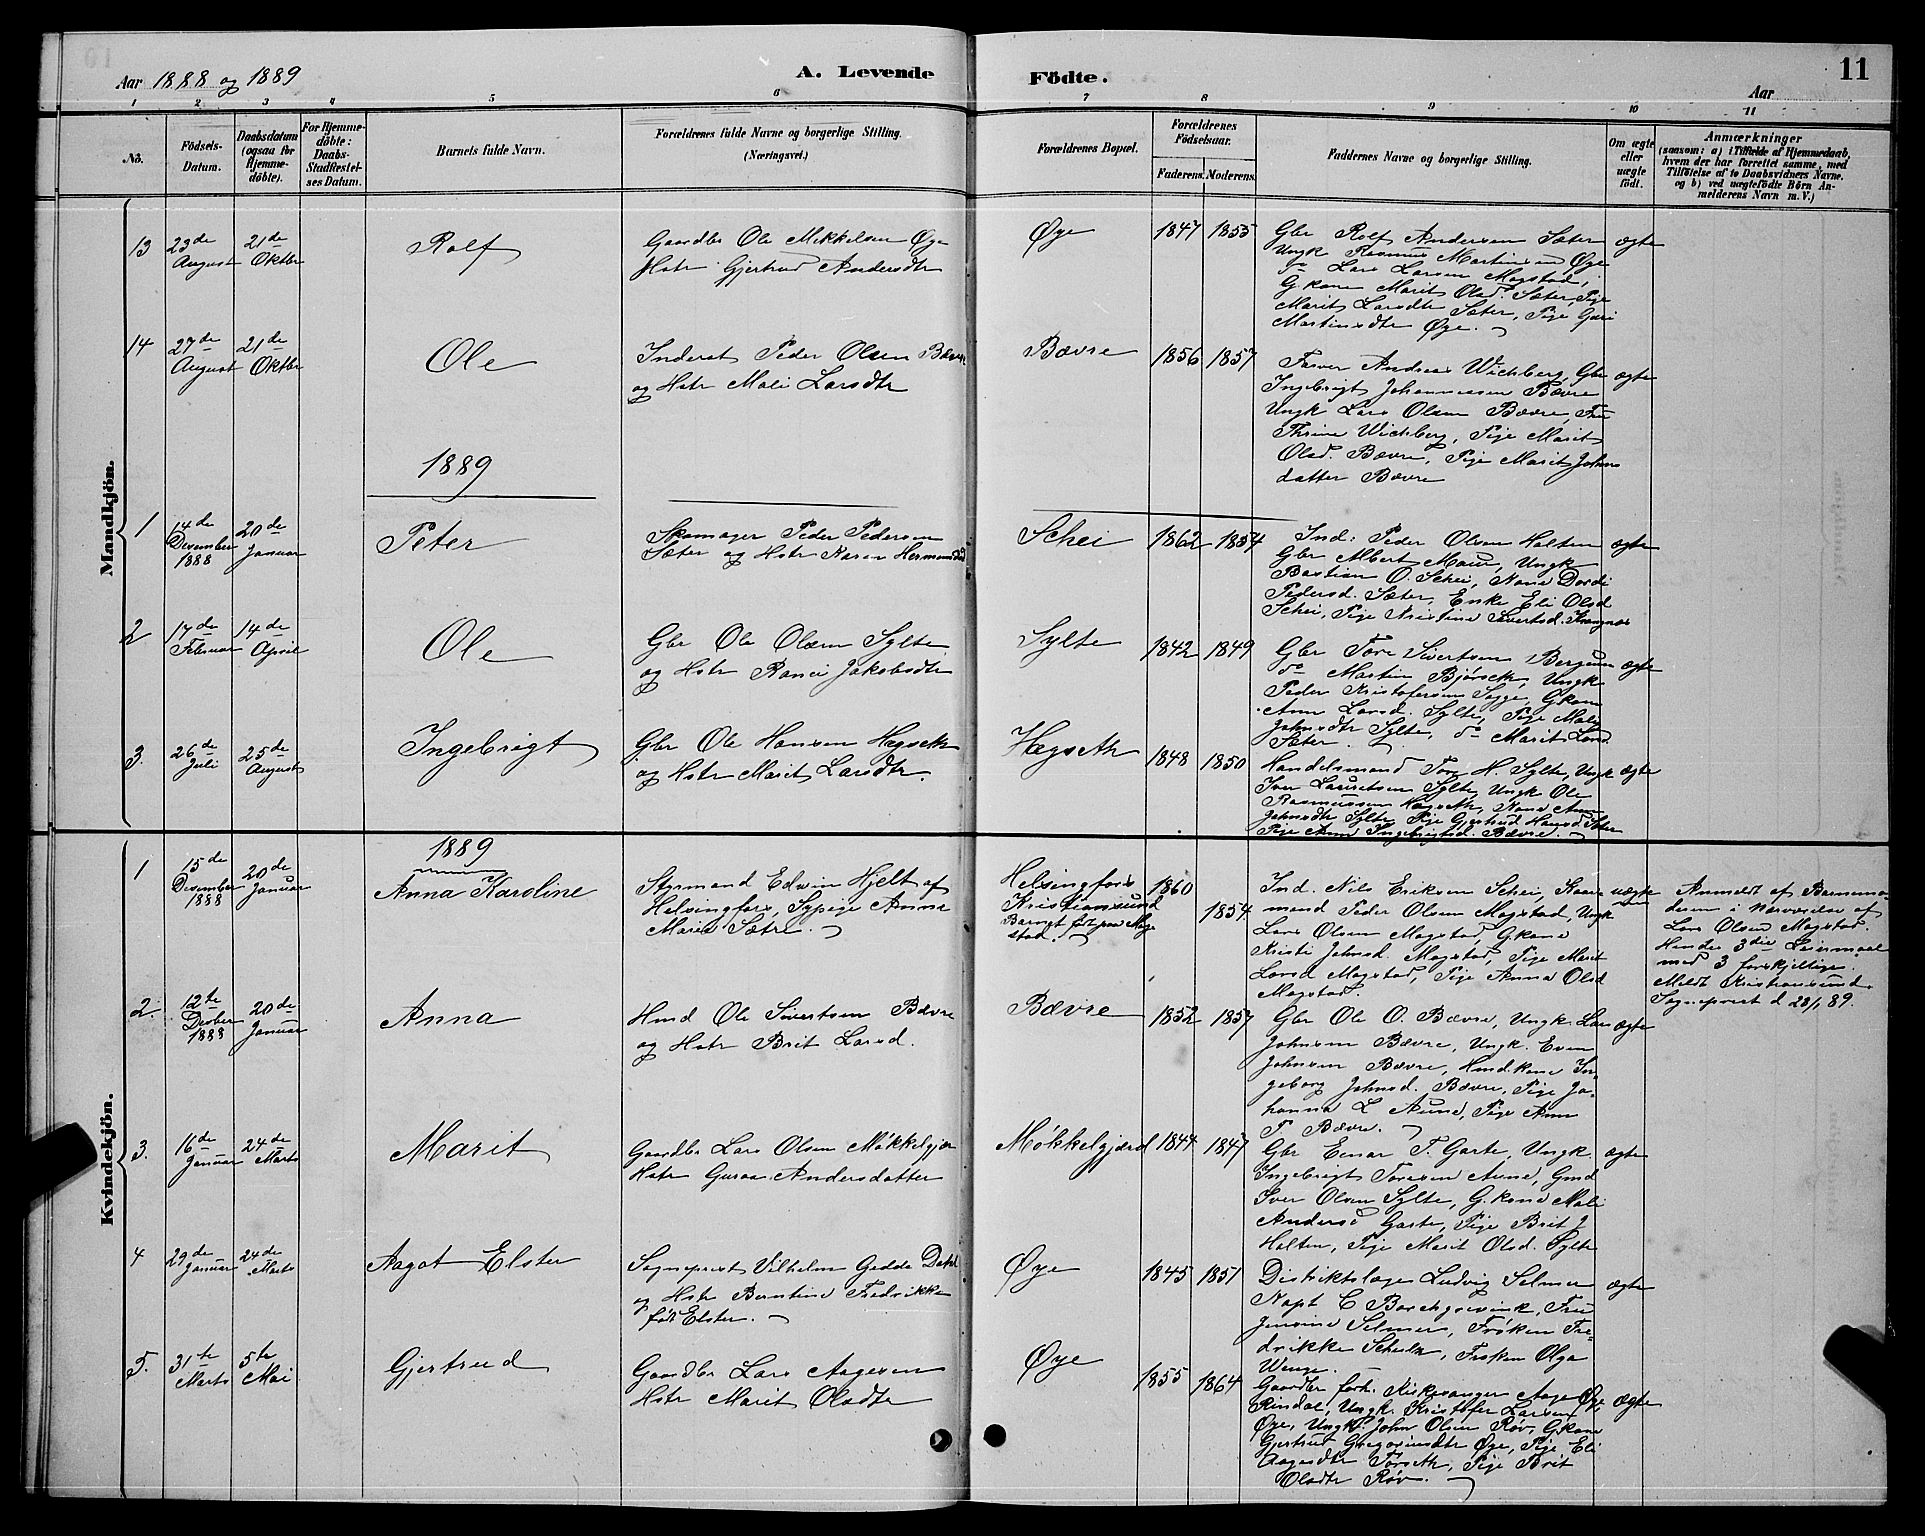 Aar 1888 og 1889
A. Levende
Födte.
11
Aar
1 2 3 4 5 6 7 8 9 10 11
No.
Födsels-
Datum.
Daabsdatum
(ogsaa for
Hjemme-
döbte).
For Hjemme-
döbte:
Daabs-
Stadfæstel-
ses Datum.
Barnets fulde Navn.
Forældrenes fulde Navne og borgerlige Stilling.
(Næringsvei.)
Forældrenes Bopæl.
Forældrenes
Födselsaar.
Faderens.
Moderens.
Faddernes Navne og borgerlige Stilling.
Om ægte
eller
uægte
födt.
Anmærkninger
(saasom: a) i Tilfælde af Hjemmedaab,
hvem der har forrettet samme, med
Tilföielse af to Daabsvidners Navne.
og b) ved uægtefödte Börn An-
melderens Navn m. V.)
Mandkjön.
13
23de
August
21de
Oktbr
Rolf
Gaardbr Ole Mikkelsen Øye
Hstr Gjertrud Andersdtr
Øye
1847 1855
Gbr Rolf Andersen Sæter
Ungk Rasmus Martinsen Øye
do Lars Larsen Magstad,
G.kone Marit Olsd. Sæter, Pige
Marit Larsdtr Sæter, Pige Guri
Martinsdtr Øye.
ægte
14
27de
August
21de
Oktbr
Ole
Inderst Peder Olsen Bævre
og Hstr Mali Larsdtr
Bævre
1856 1857
Farver Andreas Wichberg, Gbr
Ingebrigt Johannessen Bævre
Ungk Lars Olsen Bævre, Fru
Thrine Wichberg, Pige Marit
Olsd. Bævre, Pige Marit Johns
datter Bævre
ægte
1889
1
14de
December
1888
20de
Januar
Peter
Skomager Peder Pedersen
Sæter og Hstr Karen Hermansd
Schei
1862 1854
Ind: Peder Olsen Halten
Gbr Albert Moen, Ungk
Bastian O. Schei, Kone Dordi
Pedersd. Sæter, Enke Eli Olsd
Schei, Pige Kristine Sivertsd.
ægte
2
17de
Februar
14de
April
Ole
Gbr Ole Olsen Sylte
og Hstr Ranei Jakobsdtr
Sylte
1842 1849
Gbr Tore Sivertsen Bergum
do Martin Bjørseth, Ungk
Peder Kristofersen Sogge, G.kone
Ann Larsd. Sylte, Pige Mali
Johnsdtr Sylte, do Marit Larsd
Sæter.
ægte
3.
26de
Juli
25de
August
Ingebrigt
Gbr Ole Hansen Hegseth
og Hstr Marit Larsdtr.
Hægseth
1848 1850
Handelsmand Tore H. Sylte, Ungk
Iver Lauritsen Sylte, Ungk Ole
Rasmussen Hægseth, Kone Ann
Johnsdtr Sylte, Pige Gjertrud Hansd Sæter
Pige Anne Ingebrigtsd. Bævre.
ægte
Kvindekjön.
1889
1
15de
December
1888
20de
Januar
Anna Karoline
Styrmand Edwin Hjelt af
Helsingfors, Sypige Anna
Marie Sætre.
Helsingfors
Kristiansund
Barnet født paa Mag-
stad.
1860
1854
Ind. Nils Eriksen Schei, Kaare-
mand Peder Olsen Magstad, Ungk
Lars Olsen Magstad, G.kone
Kristi Johnsd. Magstad, Pige Marit
Larsd Magstad, Pige Anna Olsd
Magstad.
uægte
Anmeldt af Barnemo-
deren i Nærværelse af
Lars Olsen Magstad.
Hendes 3die Leiermaal
med 3 forskjellige.
Meldt Kristiansund
Sognepræst d 28/1 89.
2.
12te
Decber
1888
20de
Januar
Anna
Hmd Ole Sivertsen Bævre
og Hstr Brit Larsd.
Bævre
1852 1857
Gbr Ole O. Bævre, Ungk. Lars
Johnsen Bævre, Ungk. Even
Johnsen Bævre, Hmdkone In-
geborg Johnsd. Bævre, Pige Jo-
hanna L Aune, Pige Ann
T. Bævre.
ægte
3.
16de
Januar
24de
Marts
Marit
Gaardbr Lars Olsen Møkkelgjer
Hstr Guroa Andersdatter
Møkkelgjærd
1844 1847
Gbr Einar T. Garte, Ungk.
Ingebrigt Toresen Aune, Gmd
Iver Olsen Sylte, G.kone Mali
Andersd Garte, Pige Brit J
Halten, Pige Marit Olsd. Sylte
ægte
4
29de
Januar
24de
Marts
Aagot Elster
Sognepræst Vilhelm Gedde Dahl
og Hstr Berntine Fredrikke
født Elster.
Øye
1845 1851
Distriktslæge Ludvig Selmer
Kapt C Borchgrevink, Fru
Jensine Selmer, Frøken Fre-
drikke Schultz, Frøken Olga
Wenge.
ægte
5.
31te
Marts
5te
Mai
Gjertrud
Gaardbr Lars Aagesen
Hstr Marit Olsdtr
Øye
1855 1864
Gaardbr forh. Kirkesanger Aage Øye
Rindal, Ungk. Kristofer Larsen
Øye, Ungk. John Olsen Røv, G.kone
Gjertrud Gregoriusdtr Øye, Pige Eli
Aagesdtr Torseth, Pige Brit
Olsdtr Røv.
ægte